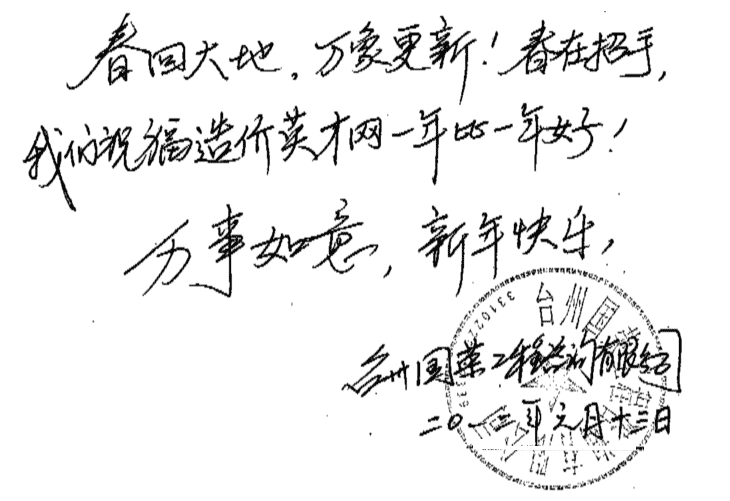 春回大地，万象更新！春在招手，
我们祝福造价英才网一年比一年好！
万事如意，新年快乐，
台州国英工程咨询有限公司
二〇一二年元月十二日
台州国
331022